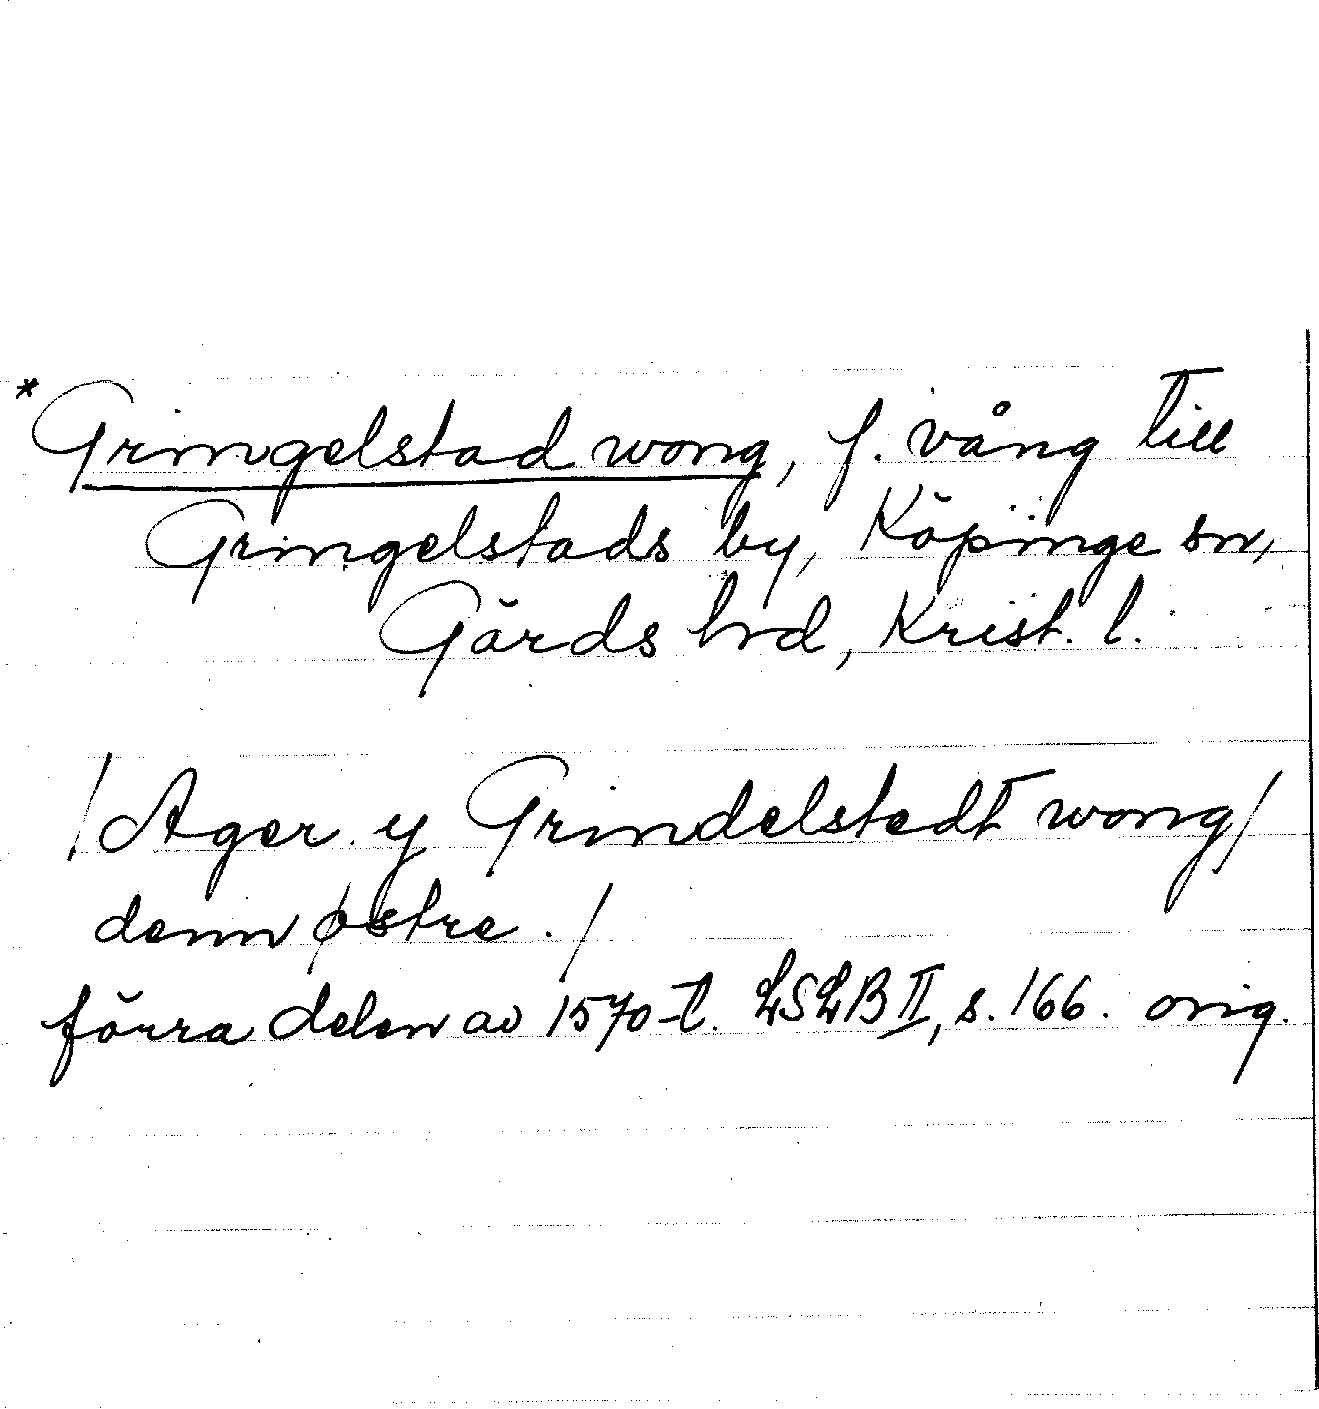 *Gringelstad wong, f. vång till
Gringelstads by, Köpinge sn,
Gärds hrd, Krist. l.
/Ager y Grindelstedt wong/
denn østre./
förra delen av 1570-t. LSLB II, s. 166. orig.